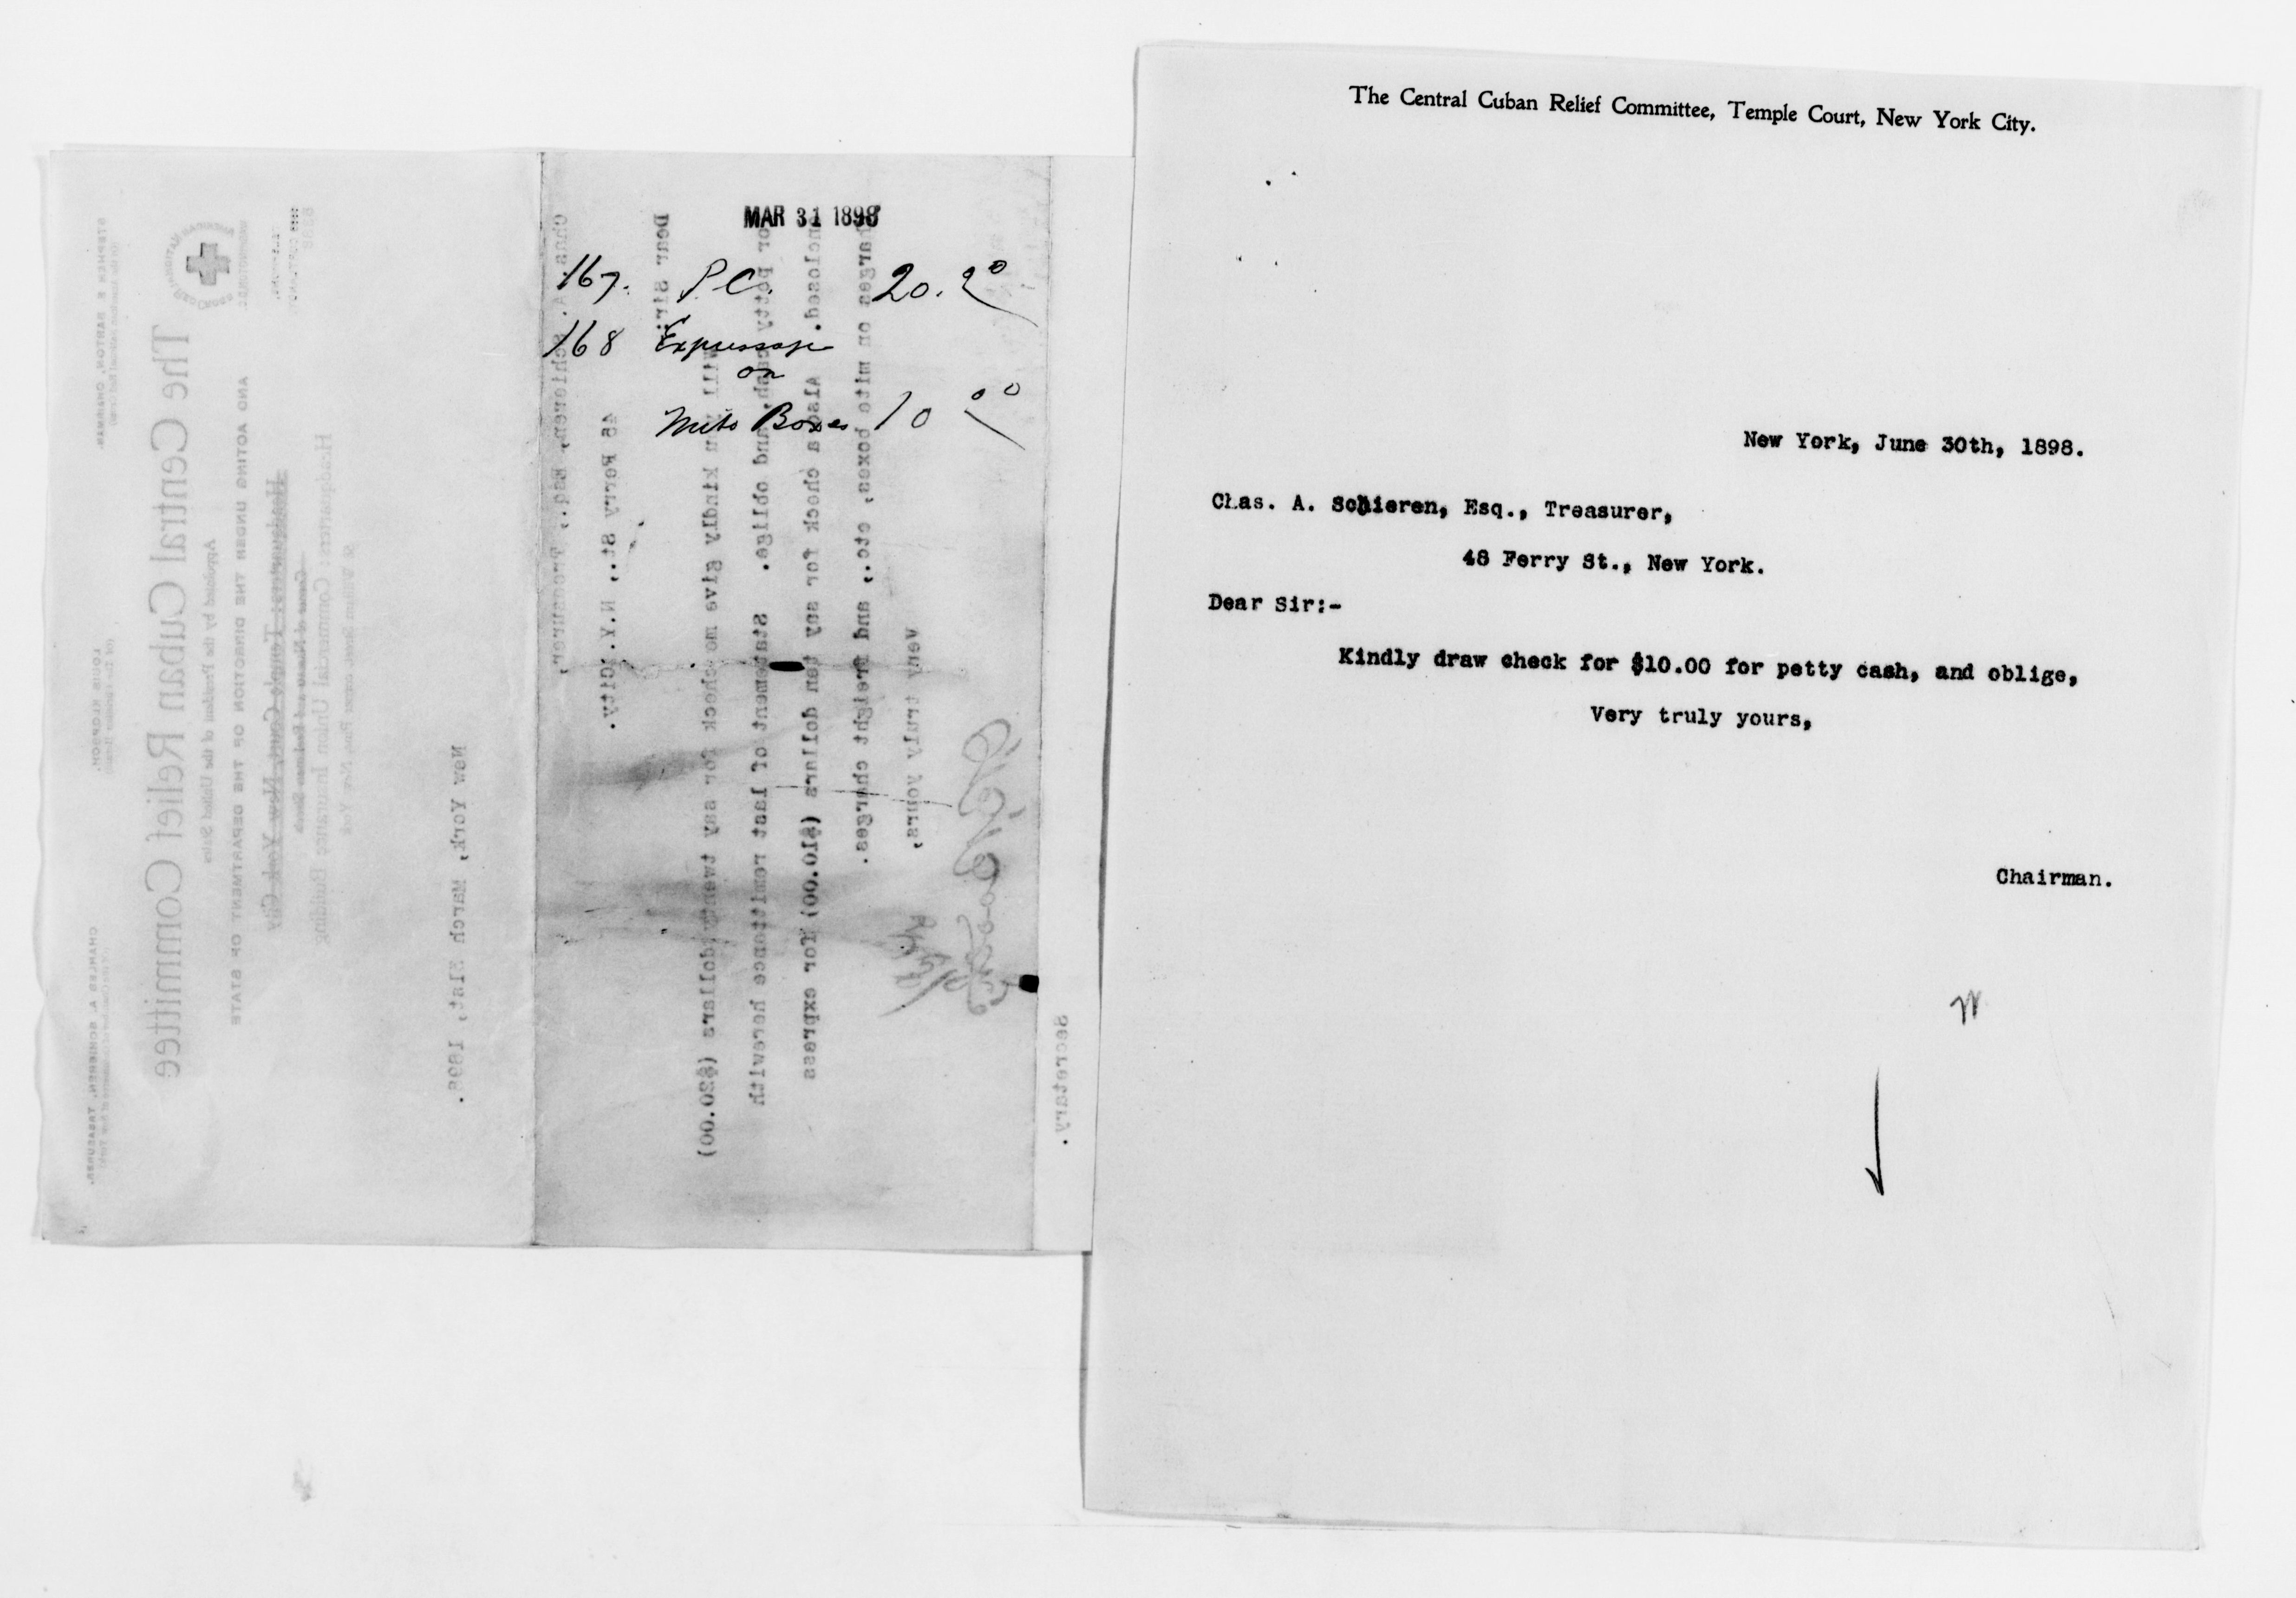 MAR 31 1898
167. P.C. 20.00
168 Expressage
on
Mite Boxes 10 00
The Central Cuban Relief Committee
AND ACTING UNDER THE DIRECTION OF THE DEPARTMENT OF STATE
Appointed by the President of the United States
STEPHEN E. BARTON, CHAIRMAN.
LOUIS KLOPSCH,
CHARLES A. SCHIEREN, TREASURER.
Headquarters: Temple Court, New York City
Headquarters: Commercial Union Insurance Building
New York, March 31st, 1898.
Chas. A. Schieren, Esq., Treasurer,
46 Ferry St., N.Y.City.
Dear Sir:
Will you kindly give me check for say twenty dollars ($20.00)
for petty cash, and oblige. Statement of last remittence herewith
enclosed. Also a check for say ten dollars ($10.00) for express
charges on mite boxes, etc., and freight charges.
Very truly yours,
Secretary.
The Central Cuban Relief Committee, Temple Court, New York City.
New York, June 30th, 1898.
Chas. A. Schieren, Esq., Treasurer,
48 Ferry St., New York.
Dear Sir:-
Kindly draw check for $10.00 for petty cash, and oblige,
Very truly yours,
Chairman.